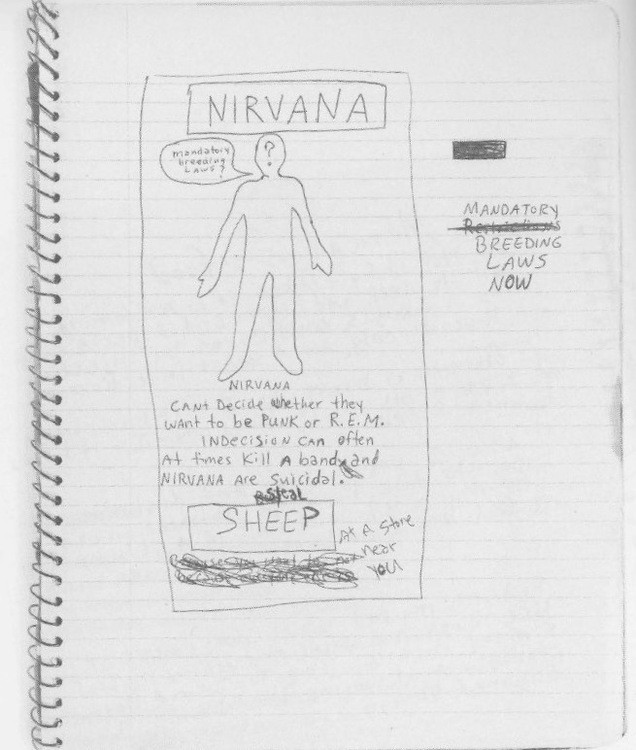 NIRVANA
?
Mandatory
breeding
LAWS?
NIRVANA
CANT Decide whether they
WANT to be PUNK or R.E.M.
INDECISION CAN often
At times Kill A band and
NIRVANA ARe suicidal.
Steal
SHEEP
At A Store
near
you
MANDATORY
BREEDING
LAWS
NOW